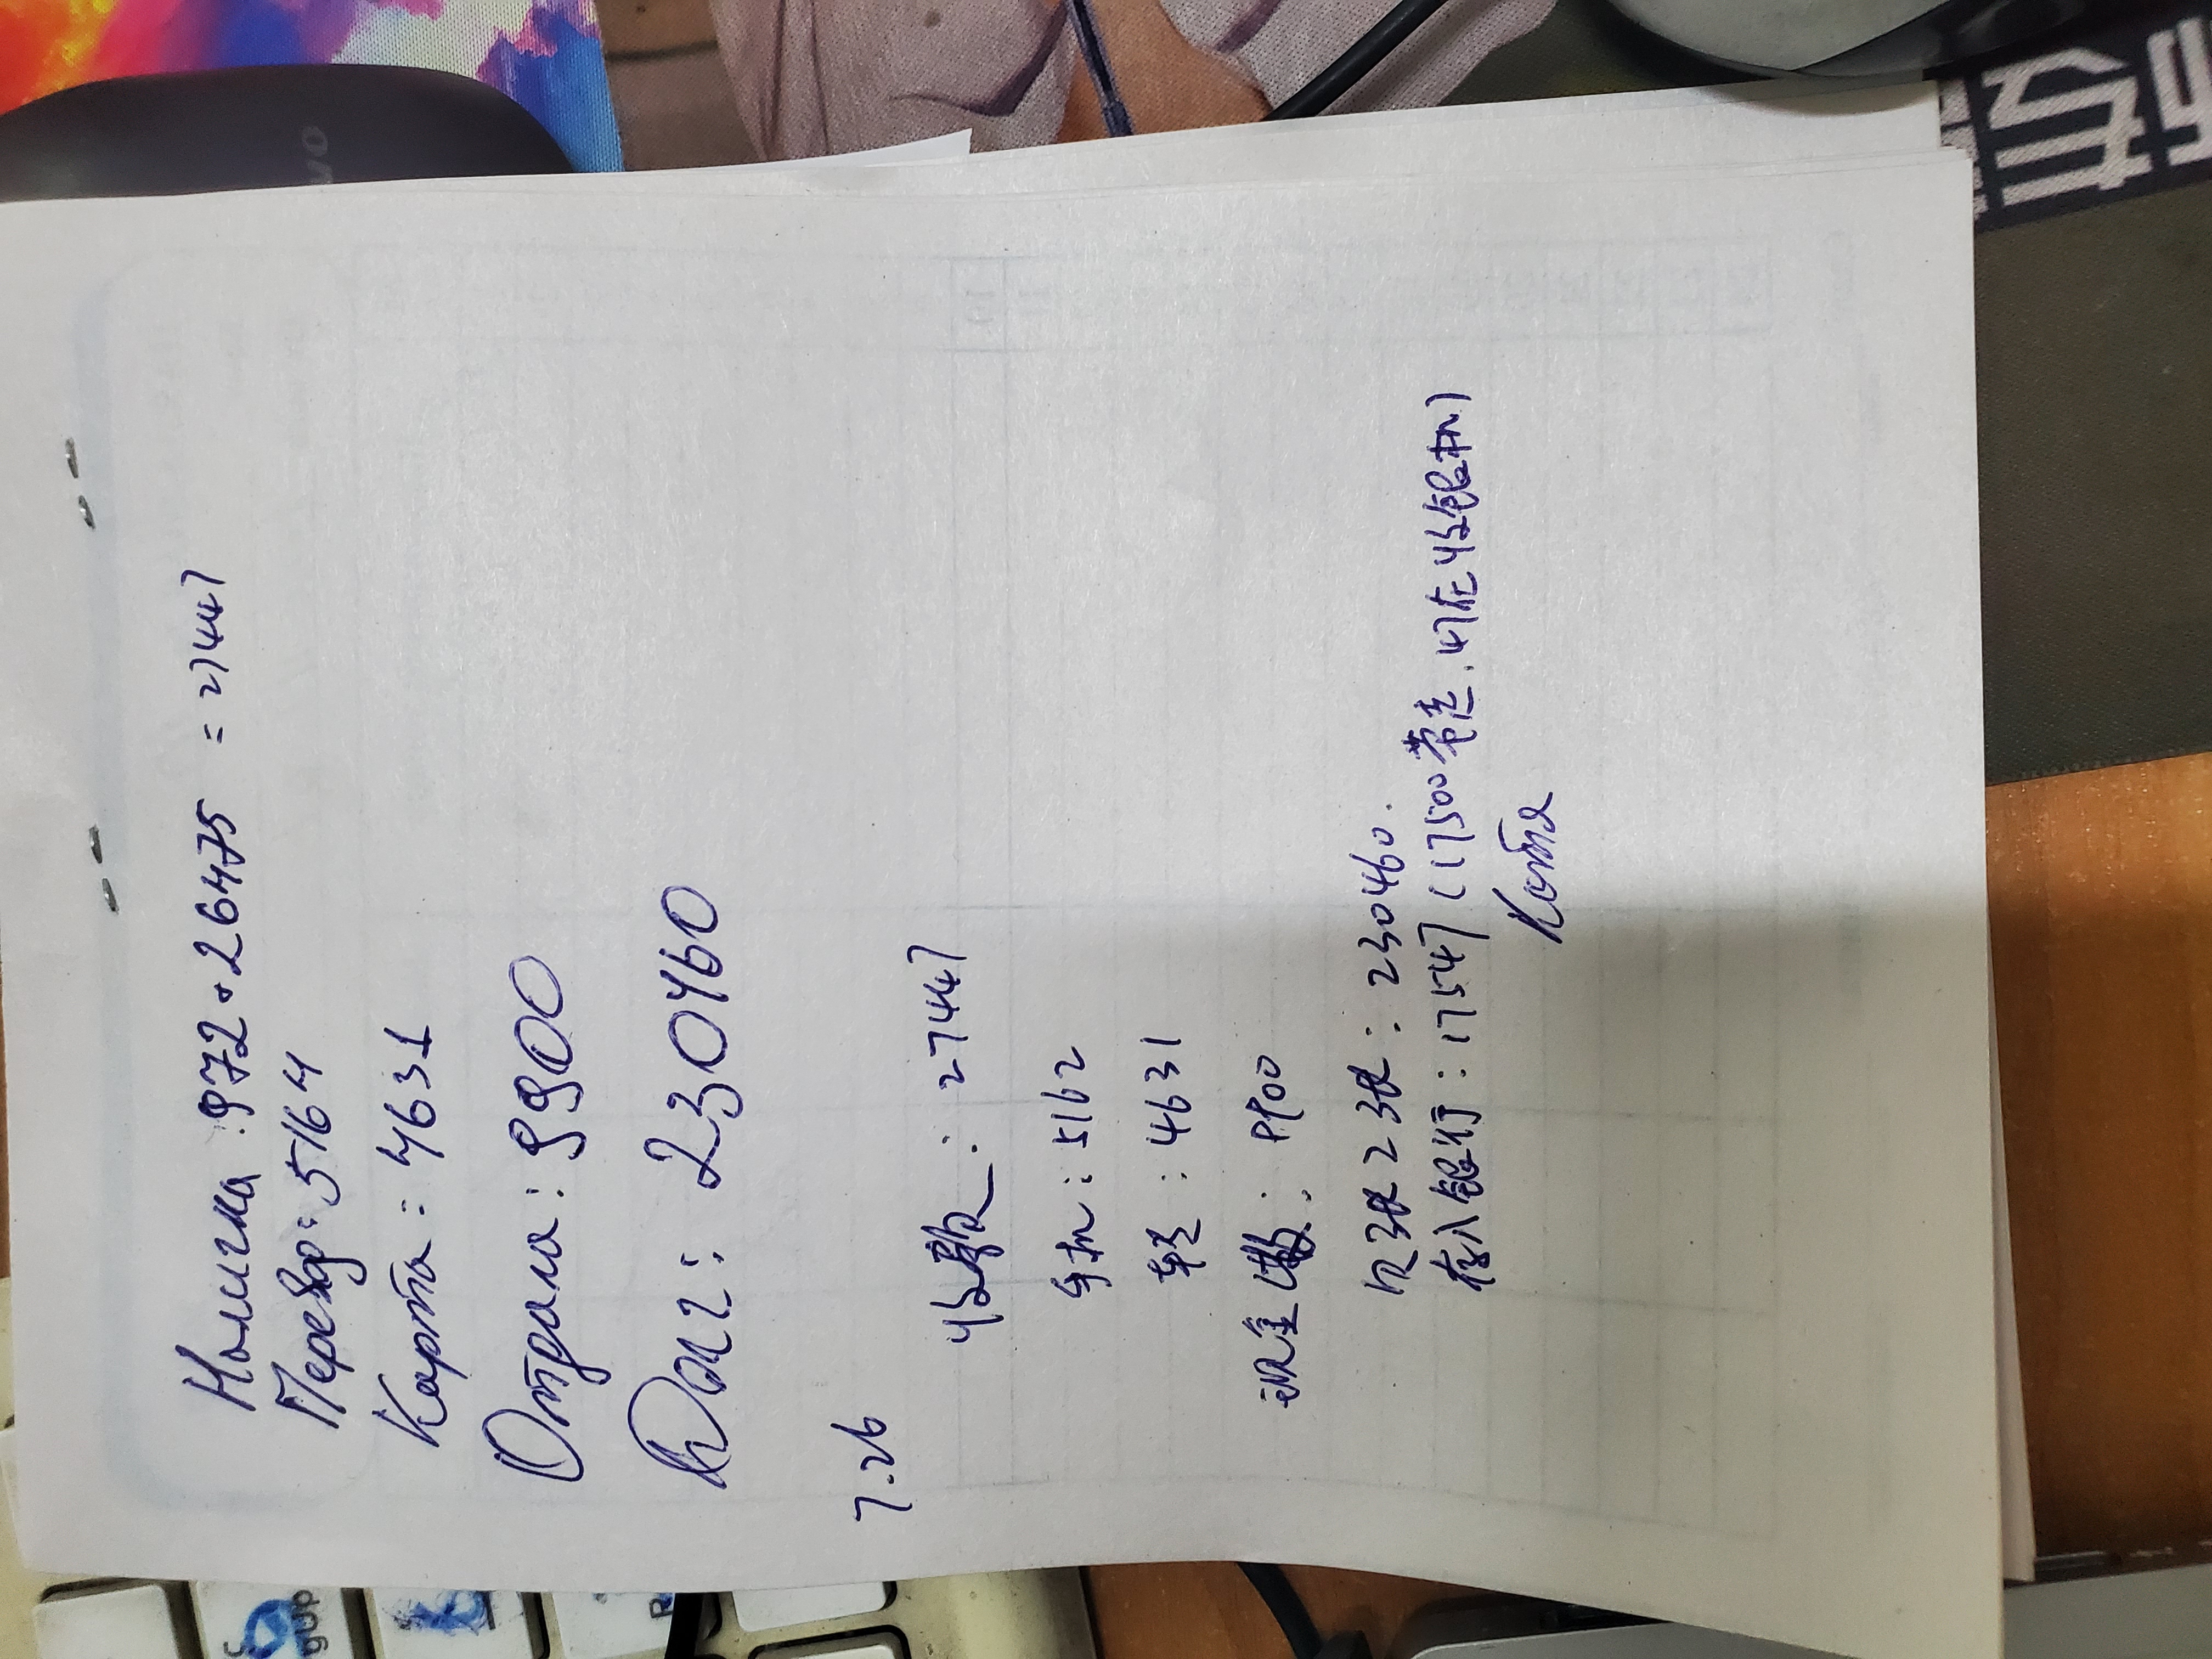 Наличка: 972+26475 = 27447
Перевод: 5164
Карта: 4631
Отдала: 9900
Долг: 230460
7.26
收款: 27447
手机: 5162
: 4631
现金 : 9900
欠 : 230460.
存入银行: 17547 (17500带走. 47在收银机)
Катя
gUp
R
vo